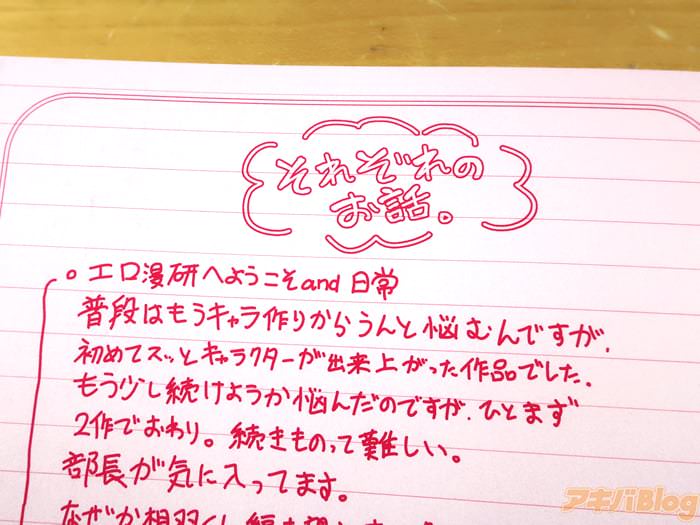 それぞれの
お話。
○ エロ漫研へようこそand 日常
普段はもうキャラ作りからうんと悩むんですが、
初めてスッとキャラクターが出来上がった作品でした。
もう少し続けようか悩んだのですが、ひとまず
2作でおわり。続きものって難しい。
部長が気に入ってます。
なぜか相羽くん編も
アキバBlog